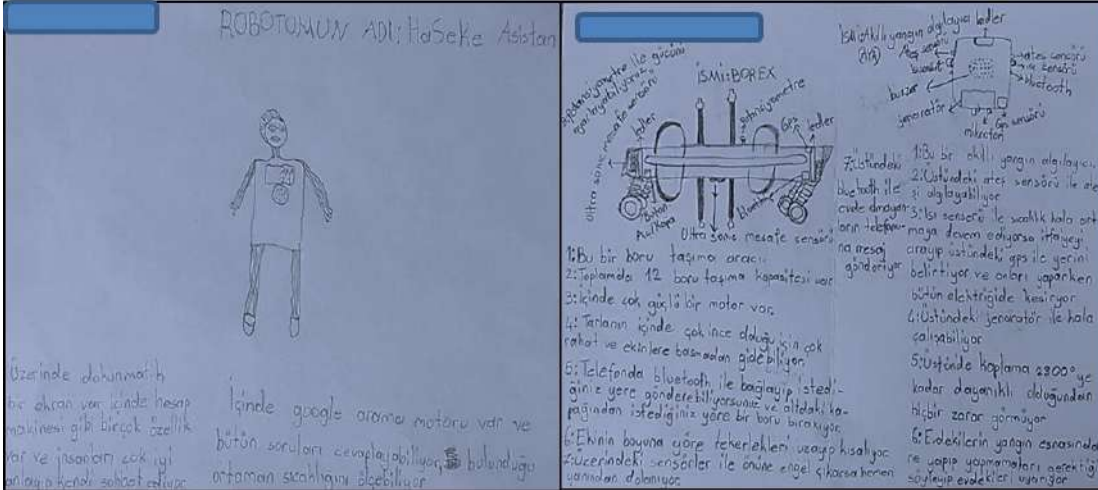 ROBOTOMUN ADI: HaSeKe Asistan
Üzerinde dokunmatik
bir ekran var içinde hesap
makinesi gibi birçok özellik
var ve insanları çok iyi
anlayıp kendi sohbet ediyor
İçinde google arama motoru var ve
bütün soruları cevaplayabiliyor bulunduğu
ortamın sıcaklığını ölçebiliyor
İSMİ: BOREX
Potansiyometre ile gücünü
ayarlayabiliyoruz
Ultra sonic mesafe sensörü
ledler
potansiyometre
Gps
ledler
Buton
Aç/Kapa
bluetooth
Ultra sonic mesafe sensörü
1: Bu bir boru taşıma aracı.
2: Toplamda 12 boru taşıma kapasitesi var
3: İçinde çok güçlü bir motor var.
4: Tarlanın içinde çok ince olduğu için çok
rahat ve ekinlere basmadan gidebiliyor.
5: Telefonda bluetooth ile bağlayıp istedi-
ğiniz yere gönderebiliyorsunuz ve alttaki ka-
pağından istediğiniz yöre bir boru bırakıyor.
6: Ekinin boyuna göre tekerlekleri uzayıp kısalıyor
7: Üzerindeki sensörler ile önüne engel çıkarsa hemen
yanından dolanıyor
İsmi: Akıllı yangın algılayıcı
ledler
Ateş sensörü
buzzer
jeneratör
mikrofon
Gps sensörü
ateş sensörü
ısı sensörü
bluetooth
1: Bu bir akıllı yangın algılayıcı.
2: Üstündeki ateş sensörü ile ate-
şi algılayabiliyor
3: Isı sensörü ile sıcaklık hala art-
maya devam ediyorsa itfaiyeyi
arayıp üstündeki gps ile yerini
belirtiyor ve onları yaparken
bütün elektriğide kesiyor
4: Üstündeki jenaratör ile hala
çalışabiliyor
5: Üstünde koplama 2800° ye
kadar dayanıklı olduğundan
hiçbir zarar görmüyor
6: Evdekilerin yangın esnasında
ne yapıp yapmamaları gerektiği
söyleyip evdekileri uyarıyor
7: Üstündeki
bluetooth ile
evde olmayan-
ların telefonu-
na mesaj
gönderiyor